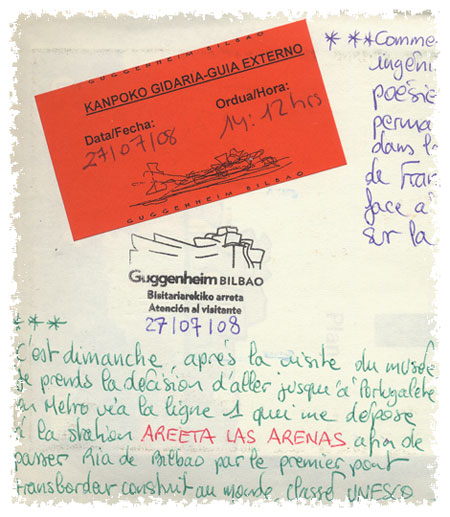 GUGGENHEIM BILBAO
KANPOKO GIDARIA-GUIA EXTERNO
Data/Fecha:
27/07/08
Ordua/Hora:
14:12 hrs
GUGGENHEIM BILBAO
***Comme
ingéni
poésie
perma
dans l
de Fra
face à
sur la
Guggenheim BILBAO
Bisitariarekiko arreta
Atención al visitante
27/07/08
***
C'est dimanche, après la visite du musée
je prends la décision d'aller jusqu'à Portugalete
en Métro via la ligne 1 qui me dépose
à la station AREETA LAS ARENAS afin de
passer Ria de Bilbao par le premier pont
transbordeur construit au monde classé UNESCO